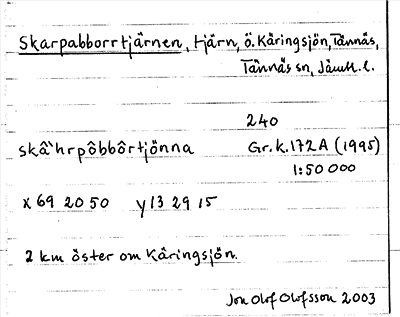 Skarpabborrtjärnen, tjärn, ö. Kåringsjön, Tännäs,
Tännäs sn, Jämtl. l.
240
skâ`hrpôbbôrtjönna Gr.k. 172 A (1995)
1:50 000
x 69 20 50 y 13 29 15
2 km öster om Kåringsjön.
Jon Olof Olofsson 2003